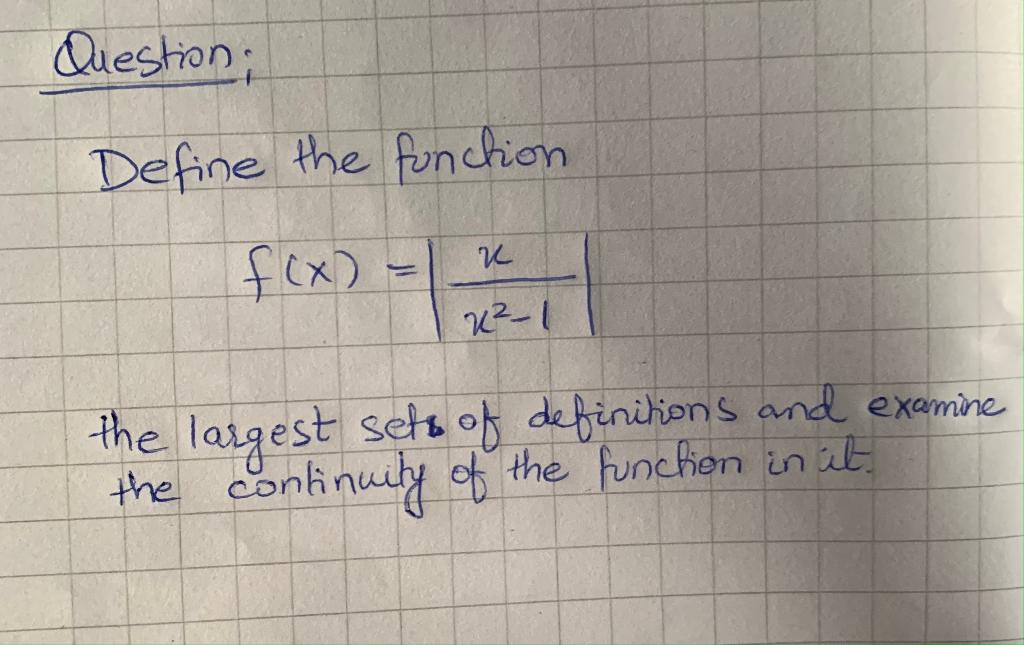 Question;
Define the function
f(x) = | x / x²-1 |
the largest sets of definitions and examine
the continuity of the function in it.